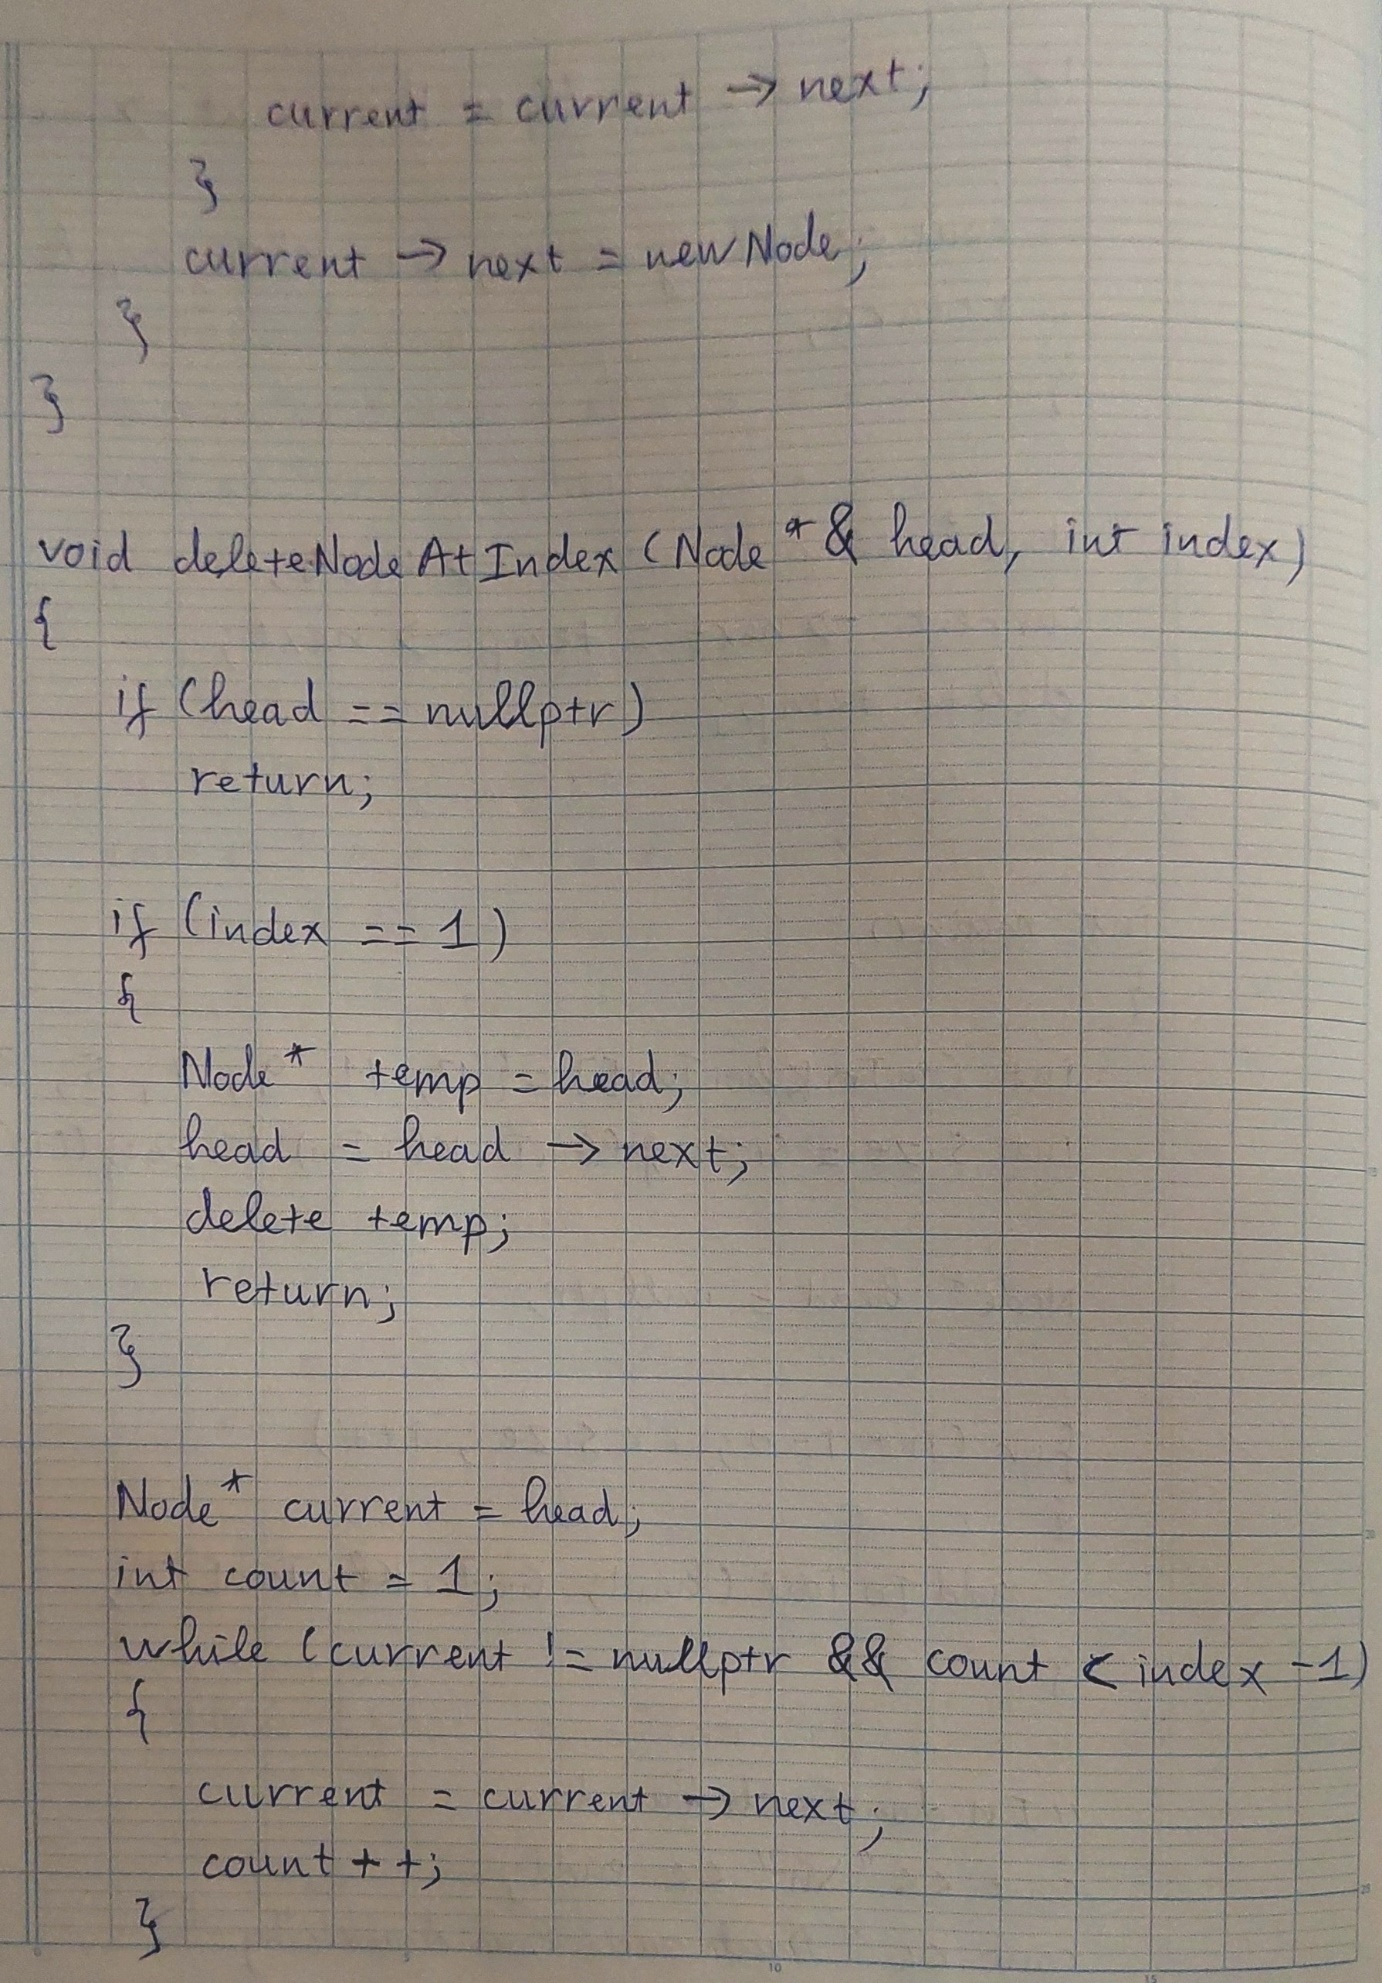 current = current → next;
}
current → next = newNode;
}
}
void deleteNodeAtIndex (Node *& head, int index)
{
if (head == nullptr)
return;
if (index == 1)
{
Node* temp = head;
head = head → next;
delete temp;
return;
}
Node* current = head;
int count = 1;
while (current != nullptr && count < index - 1)
{
current = current → next;
count ++;
}